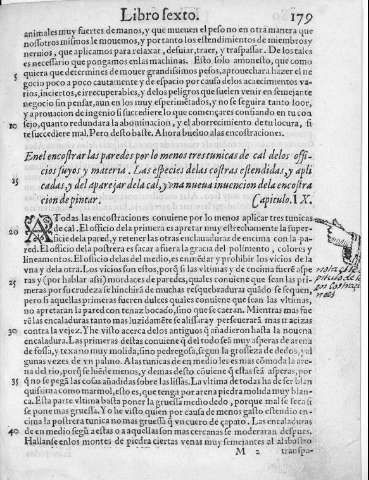 Libro sexto. 179
animales muy fuertes de manos, y que mueuen el peso no en otra manera que
nosotros mismos le mouemos, y por tanto los estendimientos de miembros y
neruios, que aplicamos para relaxar, desuiar, traer, y traspassar. De los tales
es necessario que pongamos en las machinas. Esto solo amonesto, que como
5 quiera que determines de mouer grandissimos pesos, aprouechara hazer el ne
gocio poco a poco cautamente y de espacio por causa delos acaecimientos va-
rios, inciertos, e irrecuperables, y delos peligros que suelen venir en semejante
negocio sin pensar, aun en los muy esperimẽtados, y no se seguira tanto loor,
y aprouacion de ingenio si succediere lo que començares confiando en tu con
10 sejo, quanto redundara la abominacion, y el aborrecimiento de tu locura, si
te succediere mal. Pero desto baste. Ahora bueluo a las encostraciones.
En el encostrar las paredes por lo menos tres tunicas de cal de los offi-
cios suyos y materia. Las especies de las costras estendidas, y apli
15 cadas, y del aparejar de la cal, y vna nueua inuencion de la encostra
cion de pintar. Capitulo. IX.
A Todas las encostraciones conuiene por lo menos aplicar tres tunicas
20 de cal. El officio dela primera es apretar muy estrechamente la super-
ficie dela pared, y retener las otras enclauaduras de encima con la pa-
red. El officio dela postrera es sacar a fuera la gracia del polimento, colores y
lineamentos. El officio delas del medio, es enmẽdar y prohibir los vicios de la
vna y dela otra. Los vicios son estos, porq̃ si las vltimas y de encima fuerẽ aspe
25 ras y (por hablar assi) mordaces de paredes, quales conuiene que sean las pri-
meras por su crudeza se hinchirã de muchas resquebraduras quãdo se sequen,
pero si aquellas primeras fueren dulces quales conuiene que sean las vltimas,
no apretaran la pared con tenaz bocado, sino que se caeran. Mientras mas fue
rẽ las encaladuras tanto mas luzidamẽte se alisarã y perseuerarã mas traçitas
30 contra la vejez. Y he visto acerca delos antiguos q̃ añadieron hasta la nouena
encaladura. Las primeras destas conuiene q̃ del todo seã muy asperas de arena
de fossa, y texa no muy molida, sino pedregosa, segun la grosseza de dedos, y al
gunas vezes de vn palmo. A las tunicas de en medio les es mas comoda la are-
na del rio, porq̃ se hiẽde menos, y demas desto cõuiene q̃ estas seã asperas, por
35 q̃ no se pegã las cosas añadidas sobre las lissas. La vltima de todas ha de ser blan
quissima como marmol, esto es, que tenga por arena piedra molida muy blan-
ca. Esta parte vltima basta poner la gruessa medio dedo, porque mal se seca si
se pone mas gruessa. Yo he visto quien por causa de menos gasto estendio en-
cima la postrera tunica no mas gruessa q̃ vn cuero de çapato. Las encaladuras
40 de en medio segũ a estas o a aquellas son mas cercanas se moderaran despues.
Hallanse en los montes de piedra ciertas venas muy semejantes al alabastro
M 2 transpa-